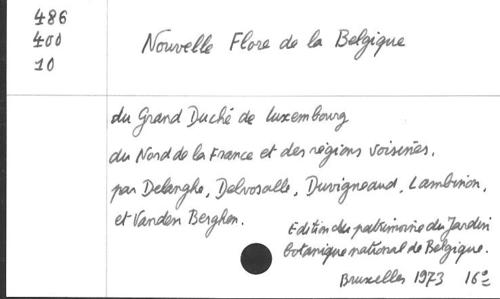 486
400
10
Nouvelle Flore de la Belgique
du Grand Duché de Luxembourg
du Nord de la France et des régions voisines,
par Delanghe, Delvosalle, Duvigneaud, Lambinon,
et Vanden Berghen.
Edition du patrimoine du Jardin
botanique national de Belgique.
Bruxelles 1973 16º